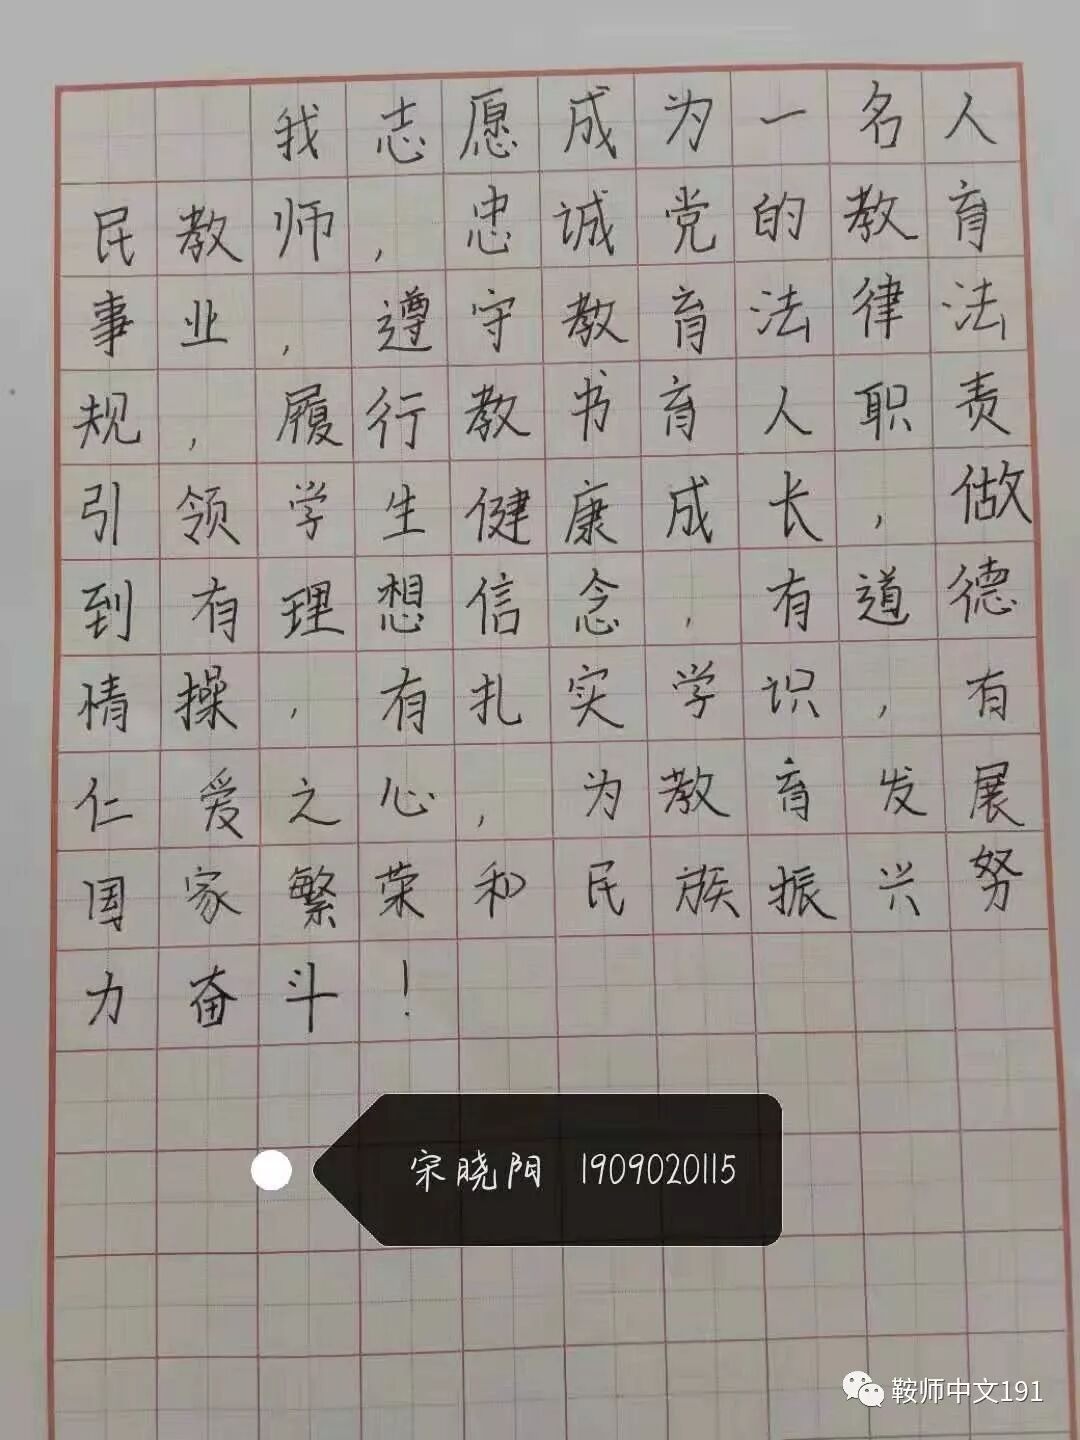 我志愿成为一名人
民教师，忠诚党的教育
事业，遵守教育法律法
规，履行教书育人职责
引领学生健康成长，做
到有理想信念，有道德
情操，有扎实学识，有
仁爱之心，为教育发展
国家繁荣和民族振兴努
力奋斗！
宋晓阳 1909020115
鞍师中文191